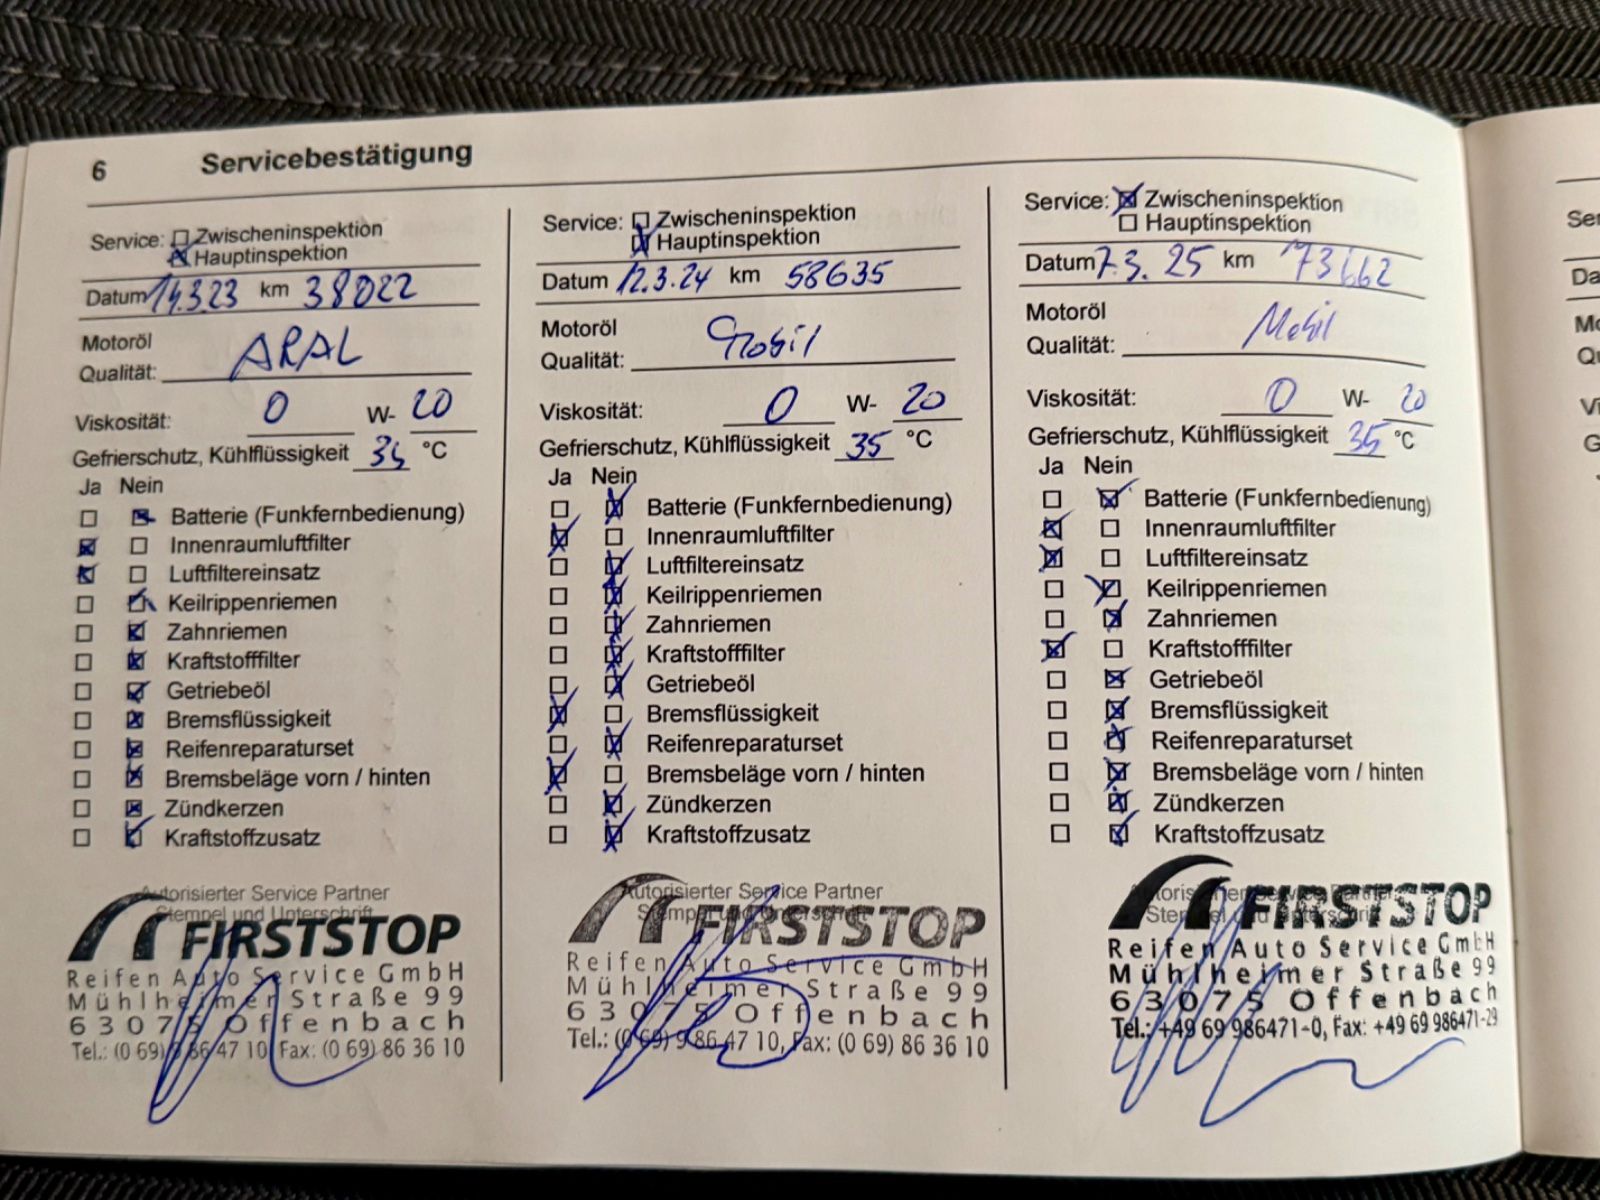 6 Servicebestätigung
Service: Zwischeninspektion
Hauptinspektion
Datum 14.3.23 km 38022
Motoröl
Qualität: ARAL
Viskosität: 0 W- 20
Gefrierschutz, Kühlflüssigkeit °C
Ja Nein
Batterie (Funkfernbedienung)
Innenraumluftfilter
Luftfiltereinsatz
Keilrippenriemen
Zahnriemen
Kraftstofffilter
Getriebeöl
Bremsflüssigkeit
Reifenreparaturset
Bremsbeläge vorn / hinten
Zündkerzen
Kraftstoffzusatz
Autorisierter Service Partner
Stempel und Unterschrift
FIRSTSTOP
Reifen Auto Service GmbH
Mühlheimer Straße 99
63075 Offenbach
Tel.: (0 69) 9 86 47 10, Fax: (0 69) 86 36 10
Service: Zwischeninspektion
Hauptinspektion
Datum 12.3.24 km 58635
Motoröl
Qualität: Mobil
Viskosität: 0 W- 20
Gefrierschutz, Kühlflüssigkeit 35 °C
Ja Nein
Batterie (Funkfernbedienung)
Innenraumluftfilter
Luftfiltereinsatz
Keilrippenriemen
Zahnriemen
Kraftstofffilter
Getriebeöl
Bremsflüssigkeit
Reifenreparaturset
Bremsbeläge vorn / hinten
Zündkerzen
Kraftstoffzusatz
Autorisierter Service Partner
Stempel und Unterschrift
FIRSTSTOP
Reifen Auto Service GmbH
Mühlheimer Straße 99
63075 Offenbach
Tel.: (0 69) 9 86 47 10, Fax: (0 69) 86 36 10
Service: Zwischeninspektion
Hauptinspektion
Datum 7.3.25 km 73662
Motoröl
Qualität: Mobil
Viskosität: 0 W- 20
Gefrierschutz, Kühlflüssigkeit 35 °C
Ja Nein
Batterie (Funkfernbedienung)
Innenraumluftfilter
Luftfiltereinsatz
Keilrippenriemen
Zahnriemen
Kraftstofffilter
Getriebeöl
Bremsflüssigkeit
Reifenreparaturset
Bremsbeläge vorn / hinten
Zündkerzen
Kraftstoffzusatz
Autorisierter Service Partner
Stempel und Unterschrift
FIRSTSTOP
Reifen Auto Service GmbH
Mühlheimer Straße 99
63075 Offenbach
Tel.: +49 69 986471-0, Fax: +49 69 986471-29